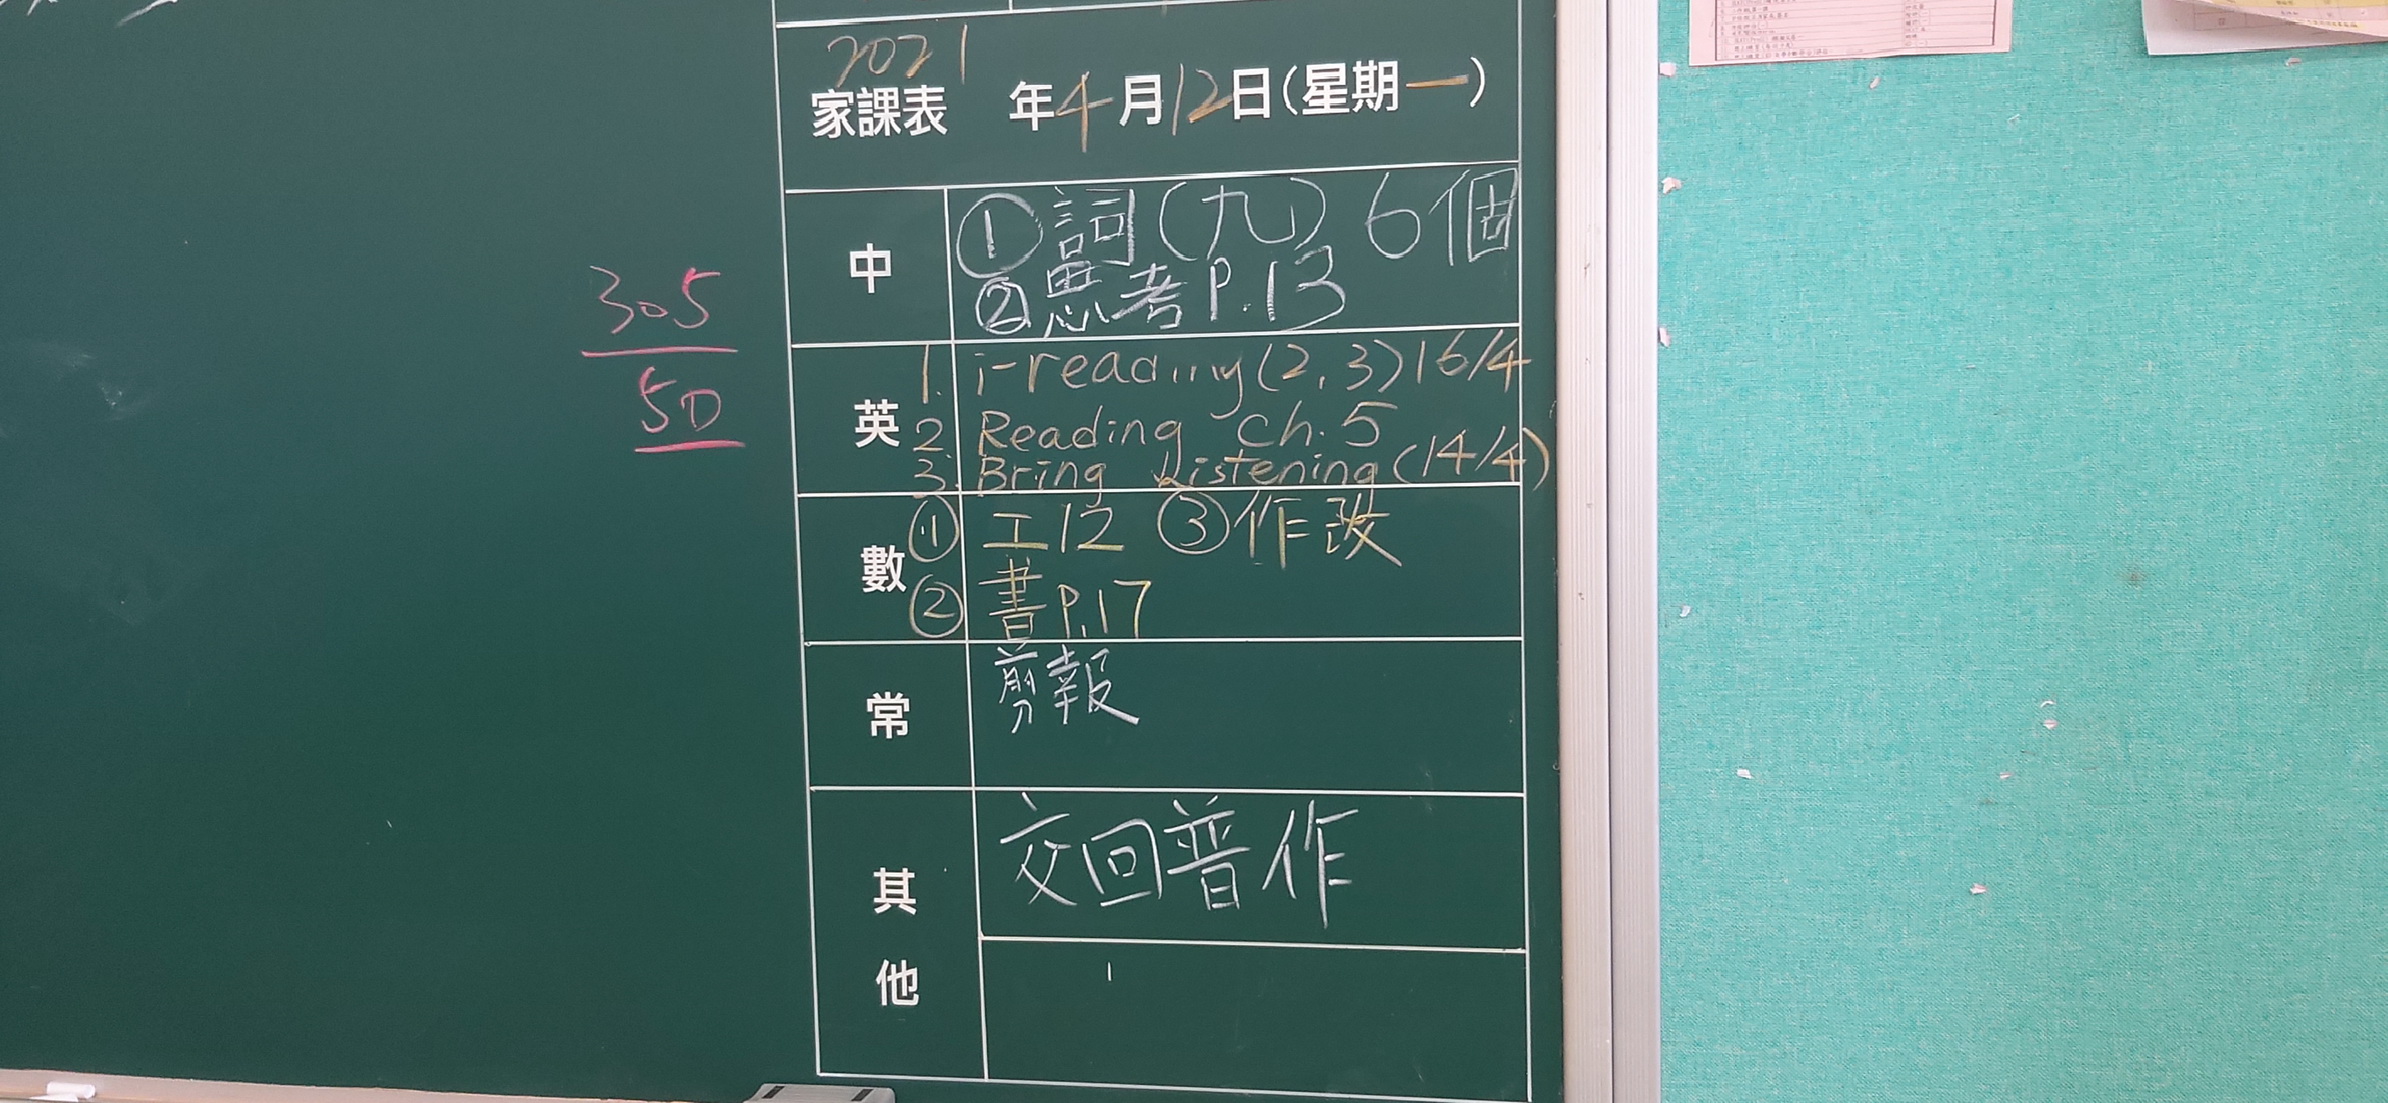 2021
家課表 年4月12日(星期一)
中
①詞(九) 6個
②思考P.13
305
50
英
1. i-reading(2,3)16/4
2. Reading Ch.5
3. Bring Listening(14/4)
數
① 工12 ③作改
② 書P.17
常
剪報
其他
交回普作